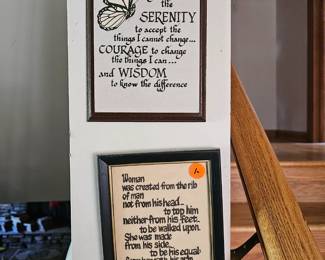 the
SERENITY
to accept the
things I cannot change...
COURAGE to change
the things I can...
and WISDOM
to know the difference
Woman
was created from the rib
of man
not from his head...
to top him
neither from his feet...
to be walked upon.
She was made
from his side...
to be his equal